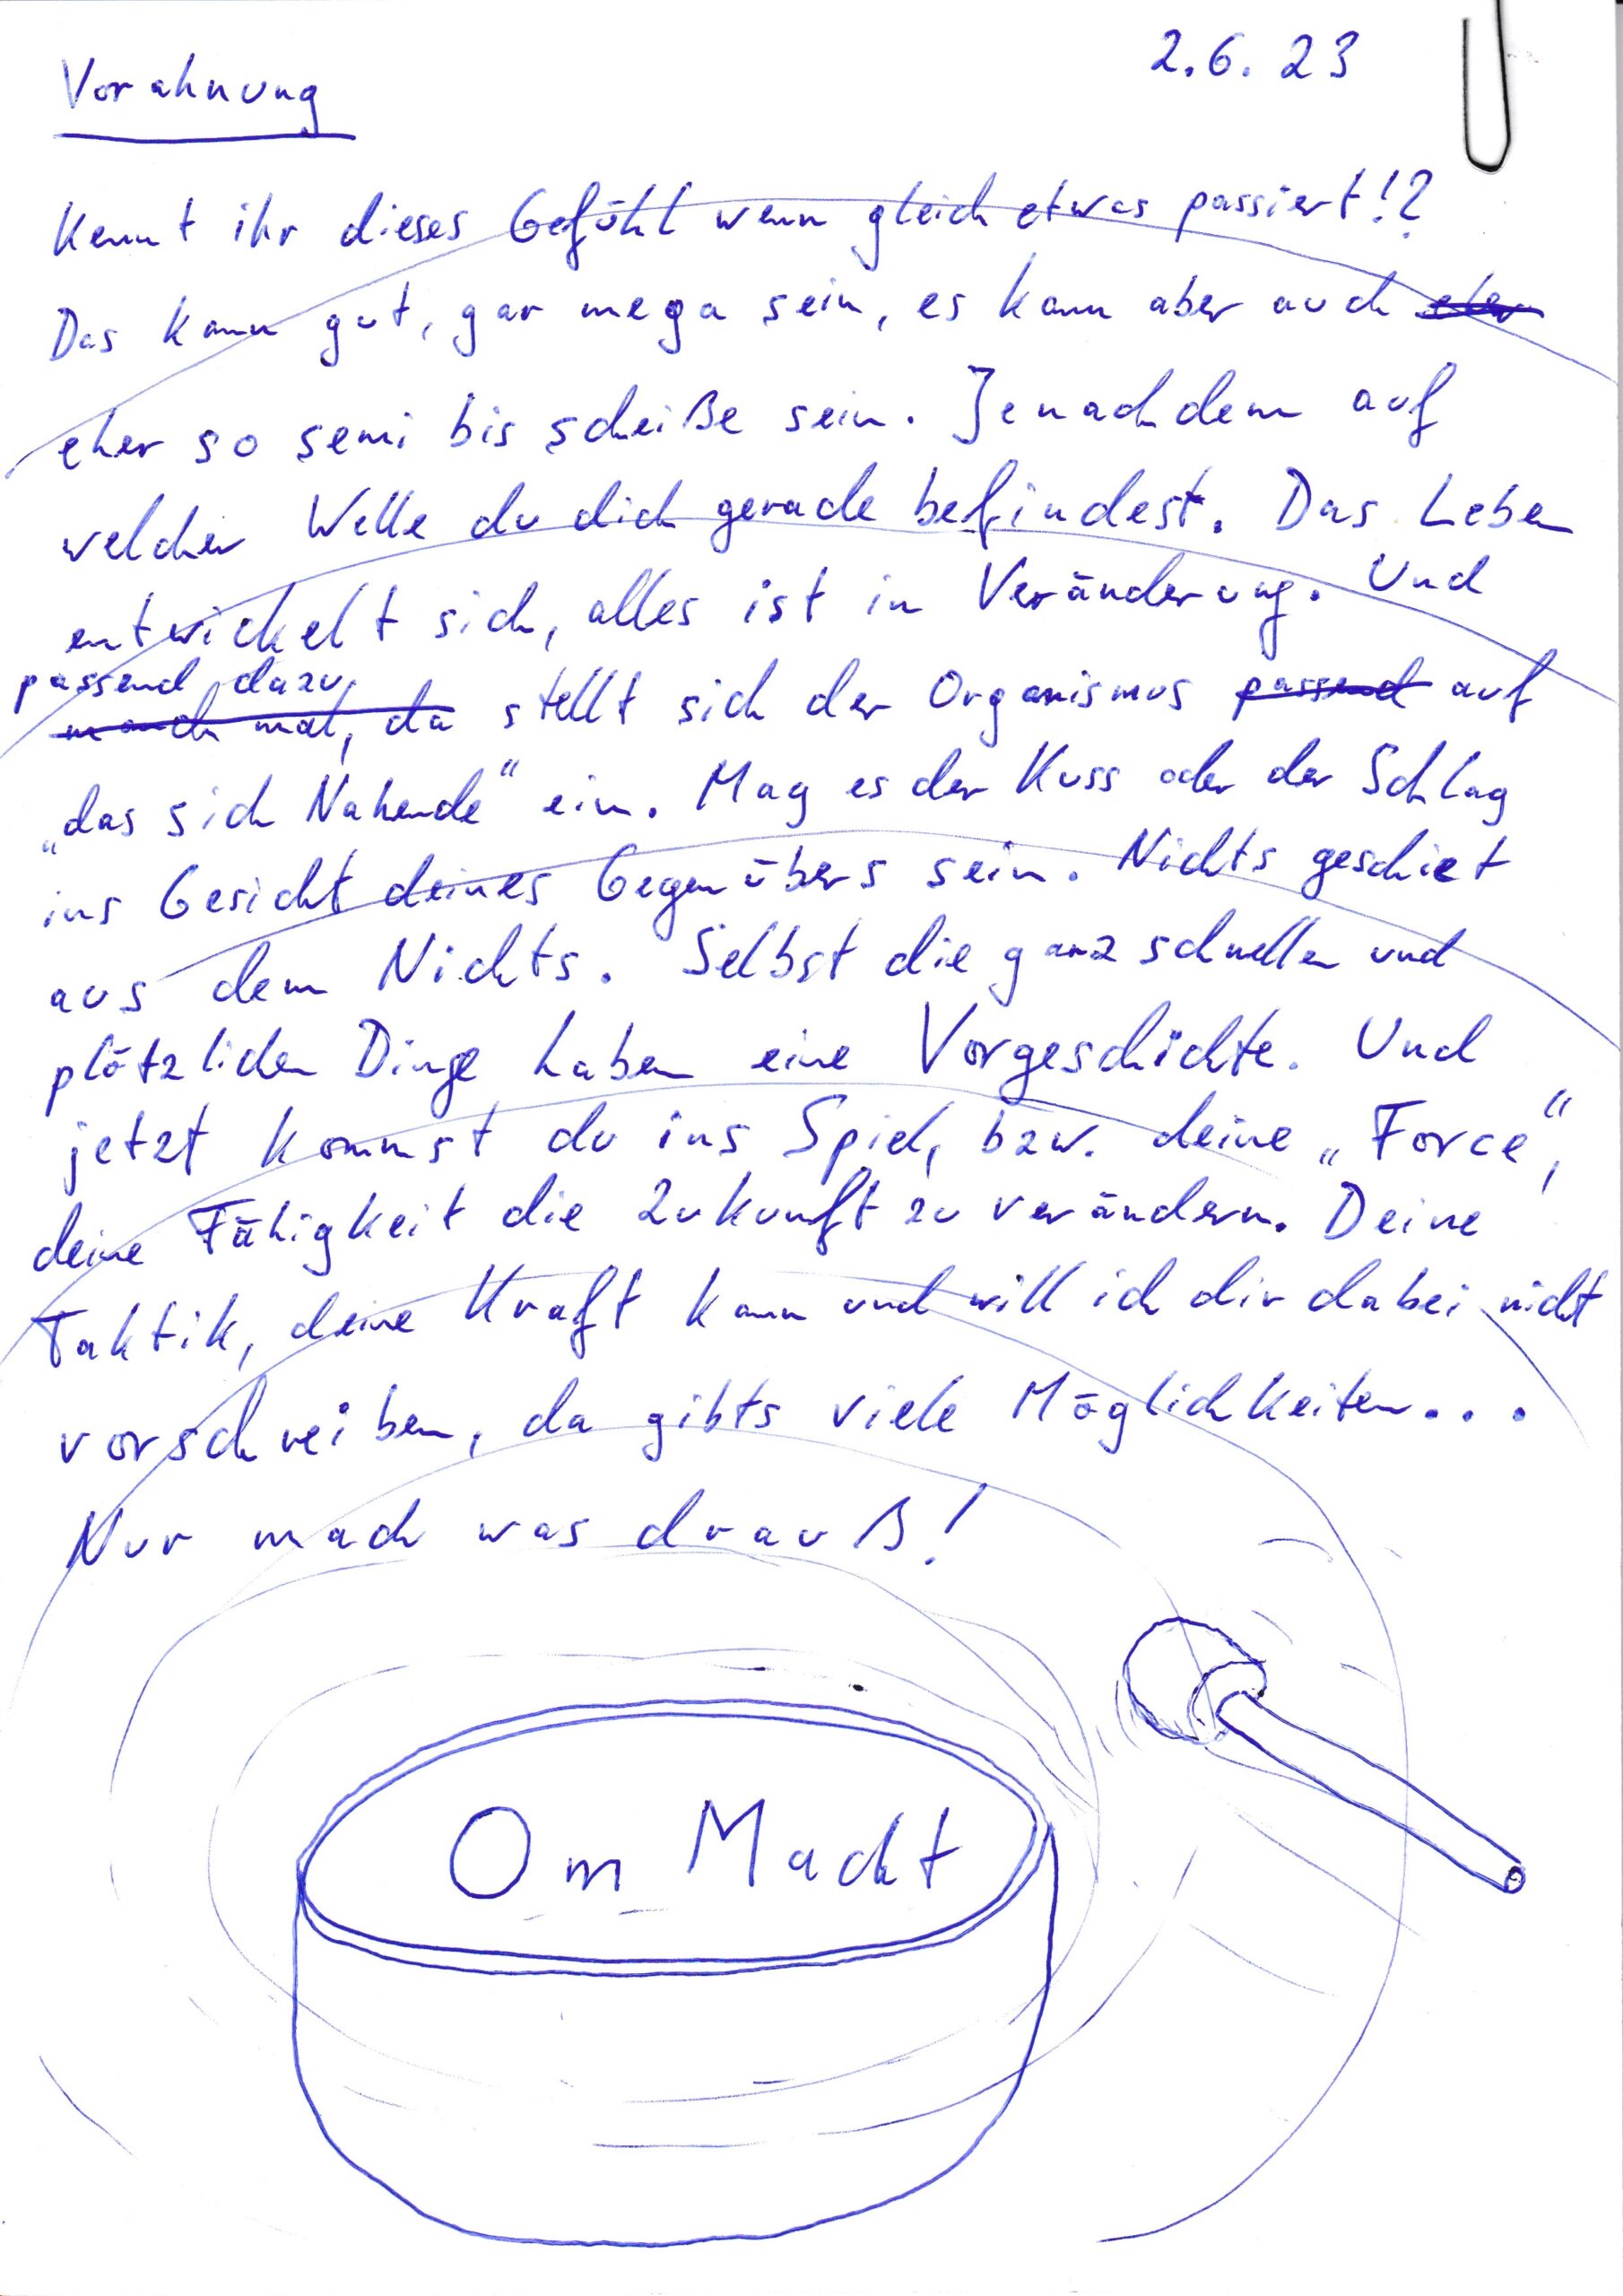 2.6.23
Vorahnung
Kennt ihr dieses Gefühl wenn gleich etwas passiert!?
Das kann gut, gar mega sein, es kann aber auch eher
eher so semi bis scheiße sein. Jenachdem auf
welcher Welle du dich gerade befindest. Das Leben
entwickelt sich, alles ist in Veränderung. Und
passend dazu
manch mal, da stellt sich der Organismus passend auf
„das sich Nahende“ ein. Mag es der Kuss oder der Schlag
ins Gesicht deines Gegenübers sein. Nichts geschiet
aus dem Nichts. Selbst die ganz schnellen und
plötzlichen Dinge haben eine Vorgeschichte. Und
jetzt kommst du ins Spiel, bzw. deine „Force“,
deine Fähigkeit die Zukunft zu verändern. Deine
Taktik, deine Kraft kann und will ich dir dabei nicht
vorschreiben, da gibts viele Möglichkeiten...
Nur mach was drauß!
Om Macht